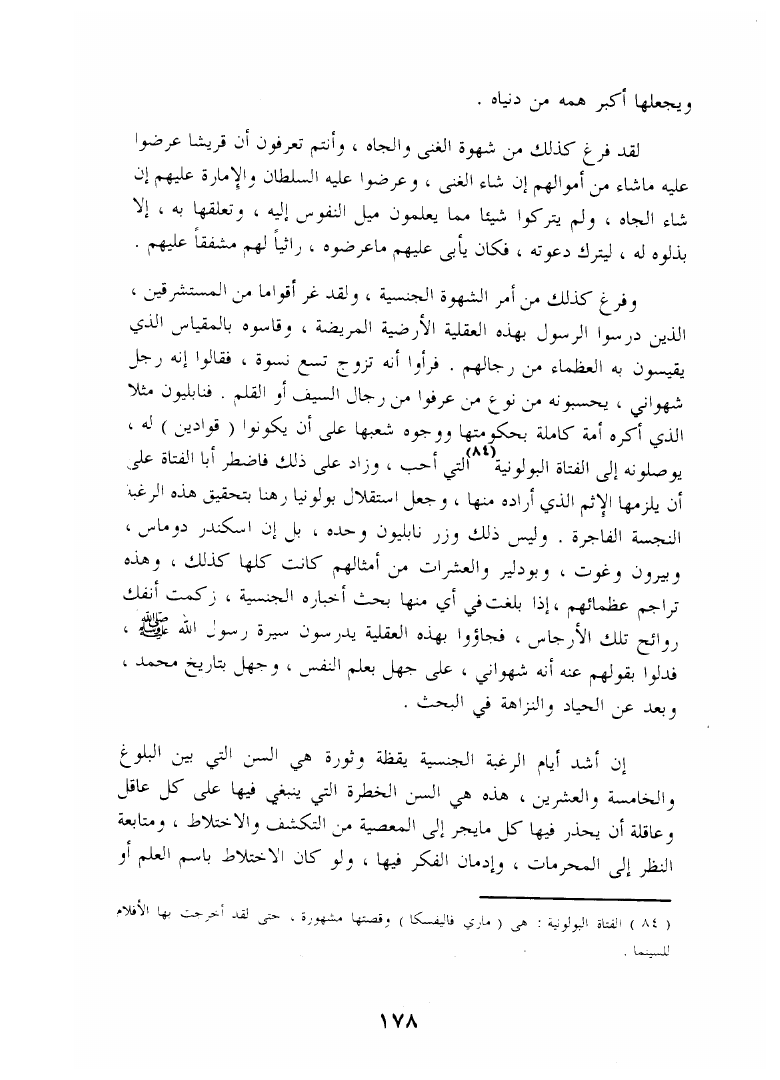 ويجعلها أكبر همه من دنياه .
لقد فرغ كذلك من شهوة الغنى والجاه ، وأنتم تعرفون أن قريشا عرضوا
عليه ماشاء من أموالهم إن شاء الغنى ، وعرضوا عليه السلطان والإمارة عليهم إن
شاء الجاه ، ولم يتركوا شيئا مما يعلمون ميل النفوس إليه ، وتعلقها به ، إلا
بذلوه له ، ليترك دعوته ، فكان يأبى عليهم ماعرضوه ، راثياً لهم مشفقاً عليهم .
وفرغ كذلك من أمر الشهوة الجنسية ، ولقد غر أقواما من المستشرقين ،
الذين درسوا الرسول بهذه العقلية الأرضية المريضة ، وقاسوه بالمقياس الذي
يقيسون به العظماء من رجالهم . فرأوا أنه تزوج تسع نسوة ، فقالوا إنه رجل
شهواني ، يحسبونه من نوع من عرفوا من رجال السيف أو القلم . فنابليون مثلا
الذي أكره أمة كاملة بحكومتها ووجوه شعبها على أن يكونوا ( قوادين ) له ،
يوصلونه إلى الفتاة البولونية(٨٤) التي أحب ، وزاد على ذلك فاضطر أبا الفتاة على
أن يلزمها الإثم الذي أراده منها ، وجعل استقلال بولونيا رهنا بتحقيق هذه الرغبة
النجسة الفاجرة . وليس ذلك وزر نابليون وحده ، بل إن اسكندر دوماس ،
وبيرون وغوت ، وبودلير والعشرات من أمثالهم كانت كلها كذلك ، وهذه
تراجم عظمائهم ، إذا بلغت في أي منها بحث أخباره الجنسية ، زكمت أنفك
روائح تلك الأرجاس ، فجاؤوا بهذه العقلية يدرسون سيرة رسول الله ﷺ ،
فدلوا بقولهم عنه أنه شهواني ، على جهل بعلم النفس ، وجهل بتاريخ محمد ،
وبعد عن الحياد والنزاهة في البحث .
إن أشد أيام الرغبة الجنسية يقظة وثورة هي السن التي بين البلوغ
والخامسة والعشرين ، هذه هي السن الخطرة التي ينبغي فيها على كل عاقل
وعاقلة أن يحذر فيها كل مايجر إلى المعصية من التكشف والاختلاط ، ومتابعة
النظر إلى المحرمات ، وإدمان الفكر فيها ، ولو كان الاختلاط باسم العلم أو
( ٨٤ ) الفتاة البولونية : هي ( ماري فاليفسكا ) وقصتها مشهورة ، حتى لقد أخرجت بها الأفلام
للسينما .
١٧٨